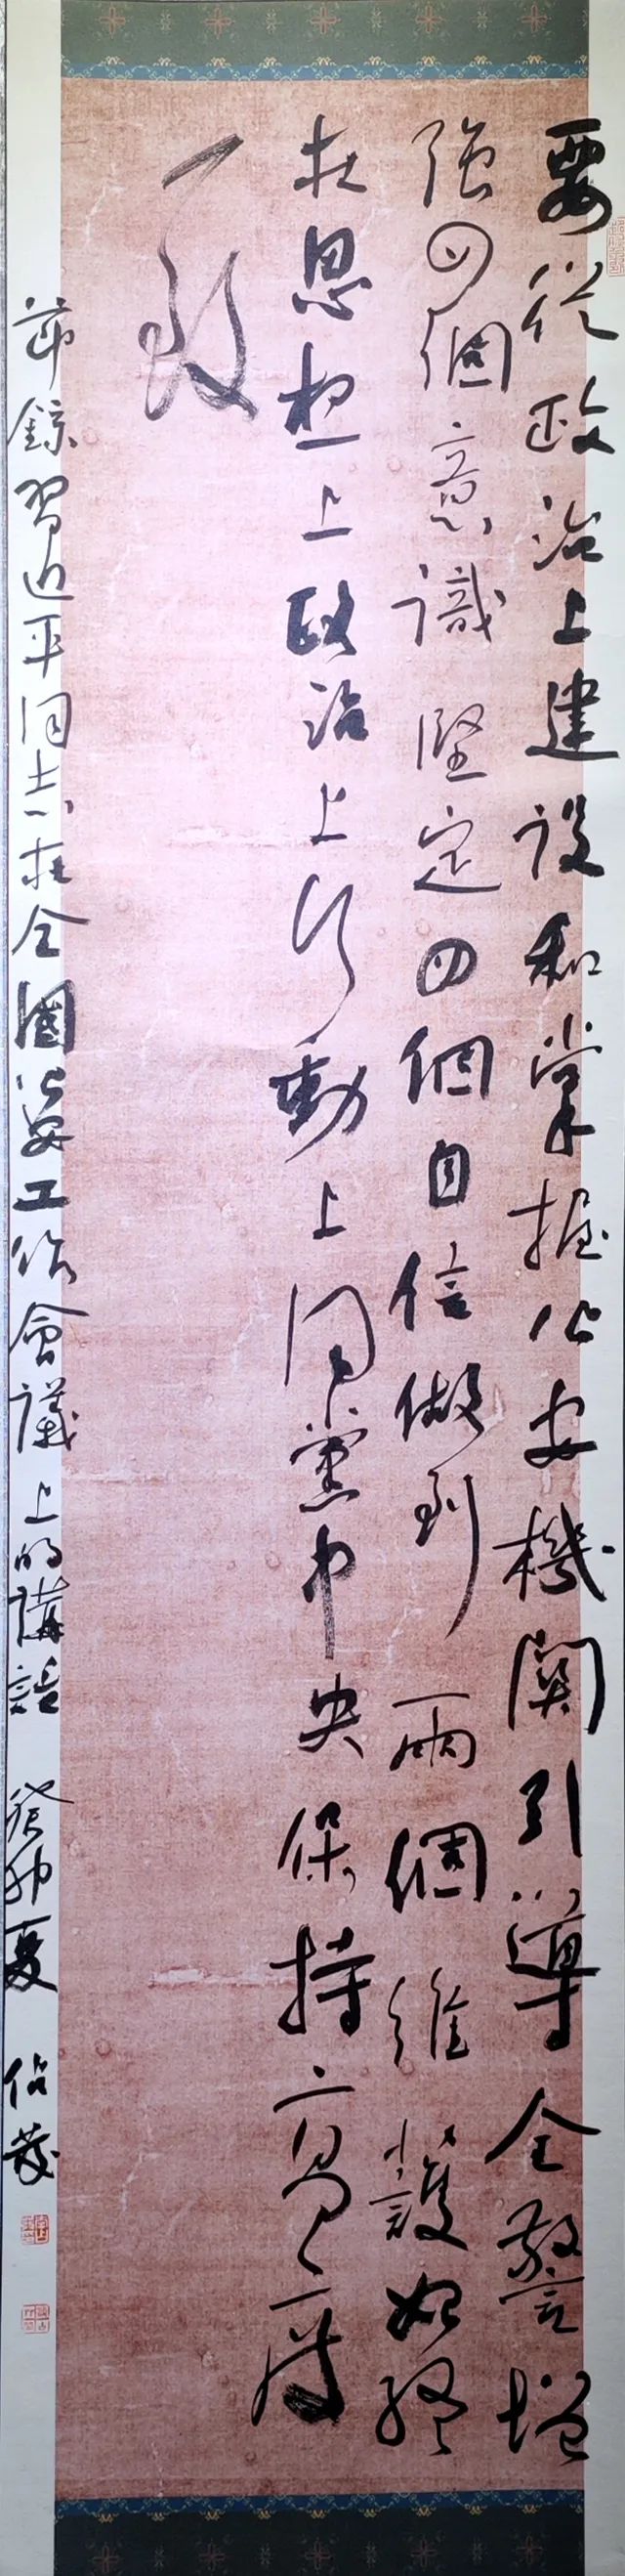 要從政治上建設和掌握公安機關引導全警增
強四個意識堅定四個自信做到兩個維護始終
在思想上政治上行動上同黨中央保持高度
一致
節錄習近平同志在全國公安工作會議上的講話 癸卯夏 佔茂